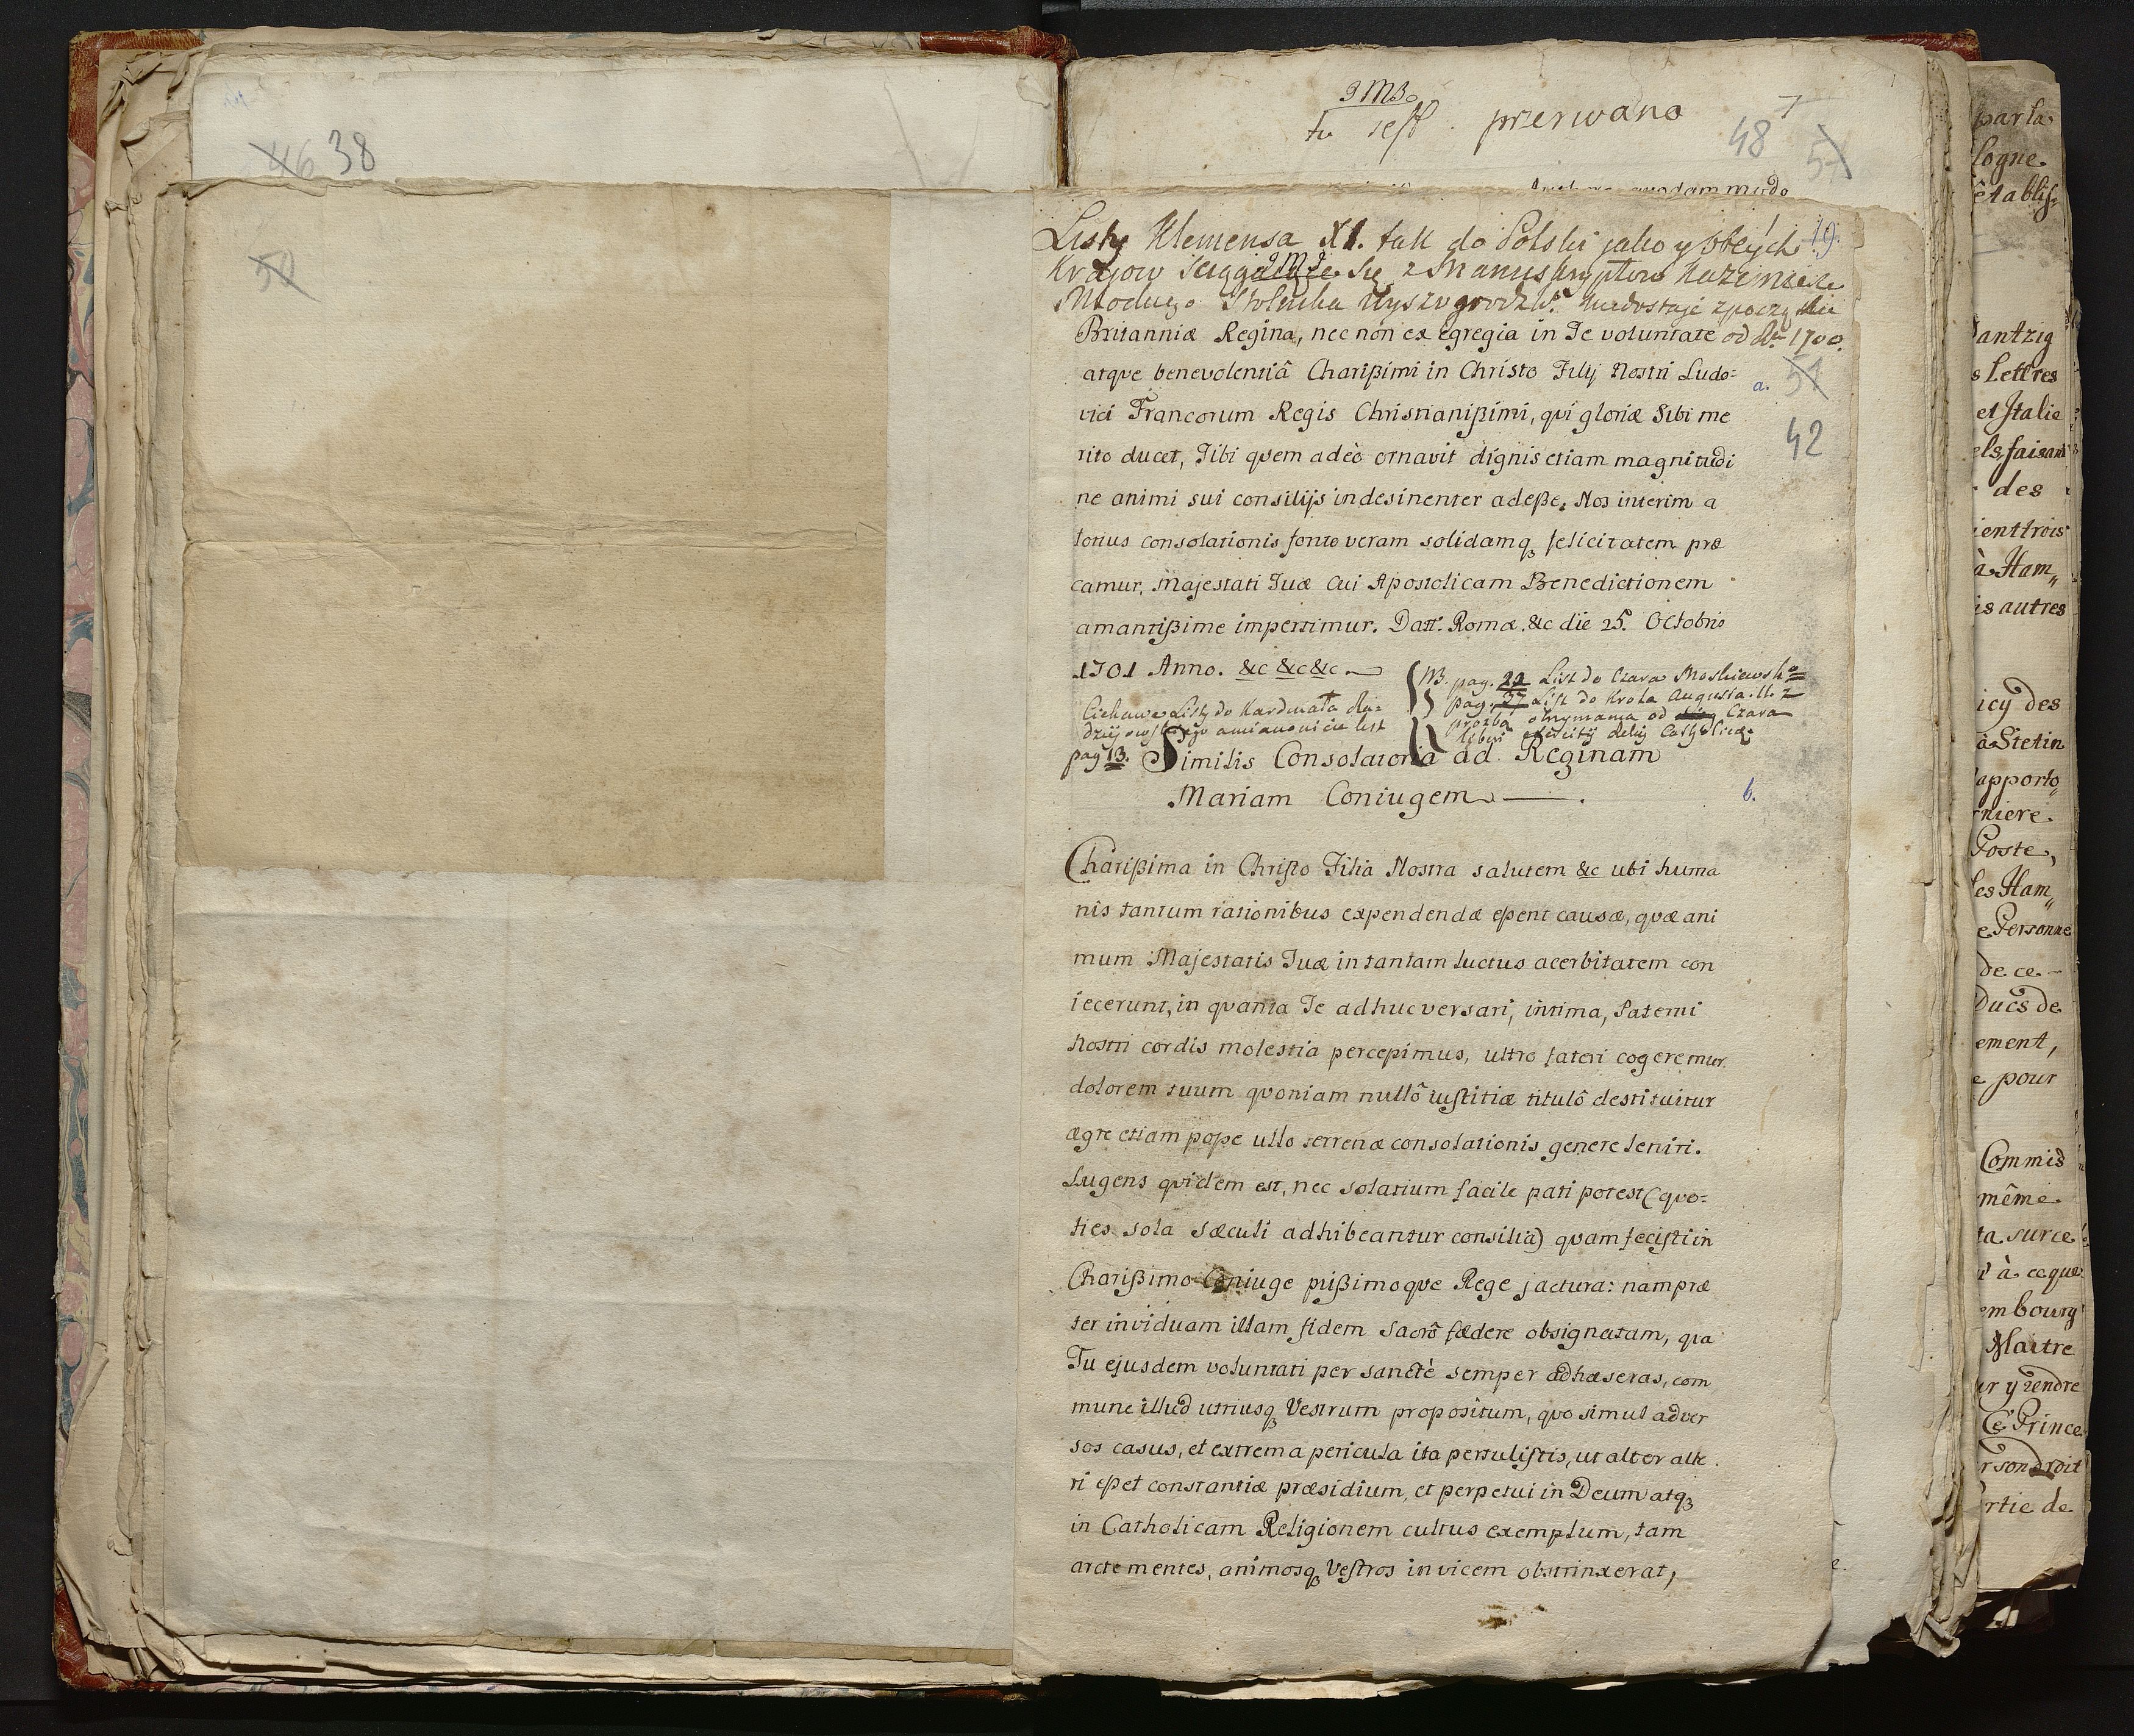 46 38
50
tu jest przerwano
48 51
quodammodo
Listy Klemensa XI. tak do Polski jako y obcych 19.
Krajow sciągające się z Manuskryptow Kazimierza
Młodego Stolnika Wyszogrodzk. niedostaje z początku
Britanniæ Regina, nec non ex egregia in Te voluntate od Ru 1700.
atqve benevolentiâ Charißimi in Christo Filij Nostri Ludo= a. 51
vici Francorum Regis Christianißimi, qvi gloriæ Sibi me
rito ducet, Tibi qvem adèo ornavit dignis etiam magnitudi 42
ne animi sui consilijs indesinenter adeße. Nos interim a
totius consolationis fonte veram solidamq; felicitatem præ
camur, Majestati Tuæ Cui Apostolicam Benedictionem
amantißime impertimur. Datt. Romæ. &c die 25. Octobris
1701 Anno. &c &c &c
NB. pag. 22 List do Czara Moskiewsko
pag. 37 List do Krola Augusta. II. z
prozbą otrzymania od Czara
liberi exercitij Relig Catholicæ.
Ciekawe Listy do Kardinała Ra=
dziejowskiego a mianowicie list
pag 13. Similis Consolatoria ad Reginam
Mariam Coniugem . b.
Charißima in Christo Filia Nostra salutem &c ubi huma
nis tantum rationibus expendendæ eßent causæ, qvæ ani
mum Majestatis Tuæ in tantam luctus acerbitatem con
iecerunt, in qvanta Te adhuc versari, intima, Paterni
Nostri cordis molestia percepimus, ultro fateri cogeremur
dolorem tuum qvoniam nullô iustitiæ titulô destituitur
ægre etiam poße ullo terrenæ consolationis genere leniri.
Lugens qvidem est, nec solatium facile pati potest (qvo=
ties sola sæculi adhibeantur consilia) qvam fecisti in
Charißimo Coniuge pijßimoqve Rege jactura: nam præ
ter inviduam illam fidem sacrô fœdere obsignatam, qva
Tu ejusdem voluntati per sanctè semper adhæseras, com
mune illud utriusq; Vestrum propositum, qvo simul adver
sos casus, et extrema pericula ita pertulistis, ut alter alte
ri eßet constantiæ præsidium, et perpetui in Deum atq;
in Catholicam Religionem cultus exemplum, tam
arcte mentes, animosq; Vestros invicem obstrinxerat,
par la
logne
êtablis=
Dantzig
s Lettres
et Italie
els faisant
des
ient trois
à Ham„
is autres
icy des
à Stetin
apporto
niere.
Poste,
les Ham„
e Personne
de ce
Ducs de
ement,
e pour
Commis
même
ta surce
à ce que
embourg
Maitre
er y rendre
Ce Prince
r son droit
rtie de